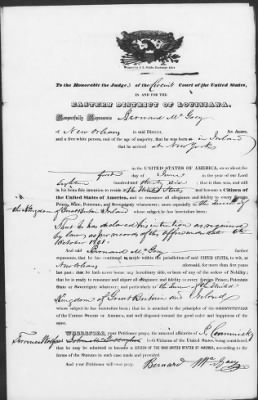 To the Honorable the Judges of the Circuit Court of the United States,
IN AND FOR THE
EASTERN DISTRICT OF LOUISIANA.
Respectfully Represents Bernard McGary
of New Orleans in said District,
and a free white person, over the age of majority, that he was born in Ireland
that he arrived at New York
in the UNITED STATES OF AMERICA, on or about the
first day of June of the year of our Lord
eighteen hundred and thirty six that it was, and still
is his bona fide intention to reside in the United States and become a Citizen of
the United States of America, and to renounce all allegiance and fidelity to every foreign
Prince, State, Potentate and Sovereignty whatsoever, more especially to the
the Kingdom of Great Britain & Ireland whose subject he has heretofore been:
That he has declared his intention as required
by law as
October 1840.
And said Bernard McGary further
represents that he has continued to reside within the jurisdiction of the UNITED STATES, to wit, in
New Orleans
ever since and for more than five years
last past; that he hath never borne any hereditary title, or been of any of the orders of Nobility;
that he is ready to renounce and abjure all allegiance and fidelity to every foreign Prince, Potentate
State or Sovereignty whatsoever; and particularly to the Queen of the United
Kingdom of Great Britain and Ireland
whose subject he has heretofore been; that he is attached to the principles of the CONSTITUTION
of the UNITED STATES OF AMERICA, and well disposed toward the good order and happiness of the
same.
WHEREFORE, your Petitioner prays, the annexed affidavits of
both Citizens of the United States, being considered
that he may be admitted to become a CITIZEN OF THE SAID UNITED STATES OF AMERICA, according to the
forms of the Statute in such case made and provided.
And your Petitioner will ever pray.
Bernard McGary